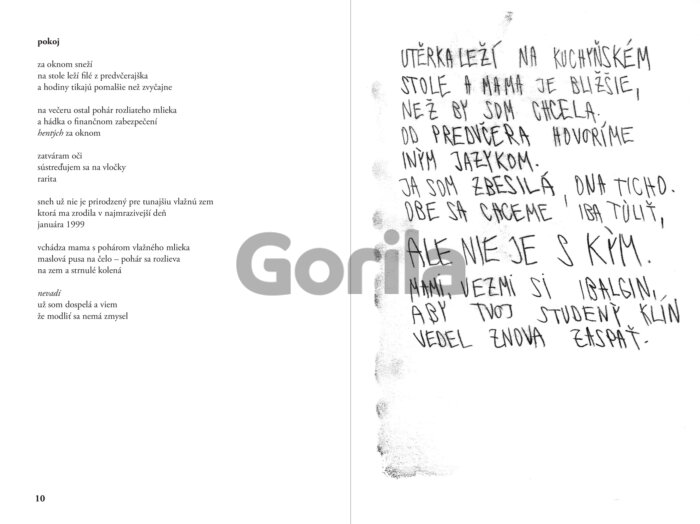 pokoj
za oknom sneží
na stole leží filé z predvčerajška
a hodiny tikajú pomalšie než zvyčajne
na večeru ostal pohár rozliateho mlieka
a hádka o finančnom zabezpečení
hentých za oknom
zatváram oči
sústreďujem sa na vločky
rarita
sneh už nie je prirodzený pre tunajšiu vlažnú zem
ktorá ma zrodila v najmrazivejší deň
januára 1999
vchádza mama s pohárom vlažného mlieka
maslová pusa na čelo – pohár sa rozlieva
na zem a strnulé kolená
nevadí
už som dospelá a viem
že modliť sa nemá zmysel
10
UTĚRKA LEŽÍ NA KUCHYŇSKÉM
STOLE A MAMA JE BLIŽŠIE,
NEŽ BY SOM CHCELA.
OD PREDVČERA HOVORÍME
INÝM JAZYKOM.
JA SOM ZBESILÁ, ONA TICHO.
OBE SA CHCEME IBA TÚLIŤ,
ALE NIE JE S KÝM.
MAMI, VEZMI SI IBALGIN,
ABY TVOJ STUDENÝ KLÍN
VEDEL ZNOVA ZASPAŤ.
Gorila